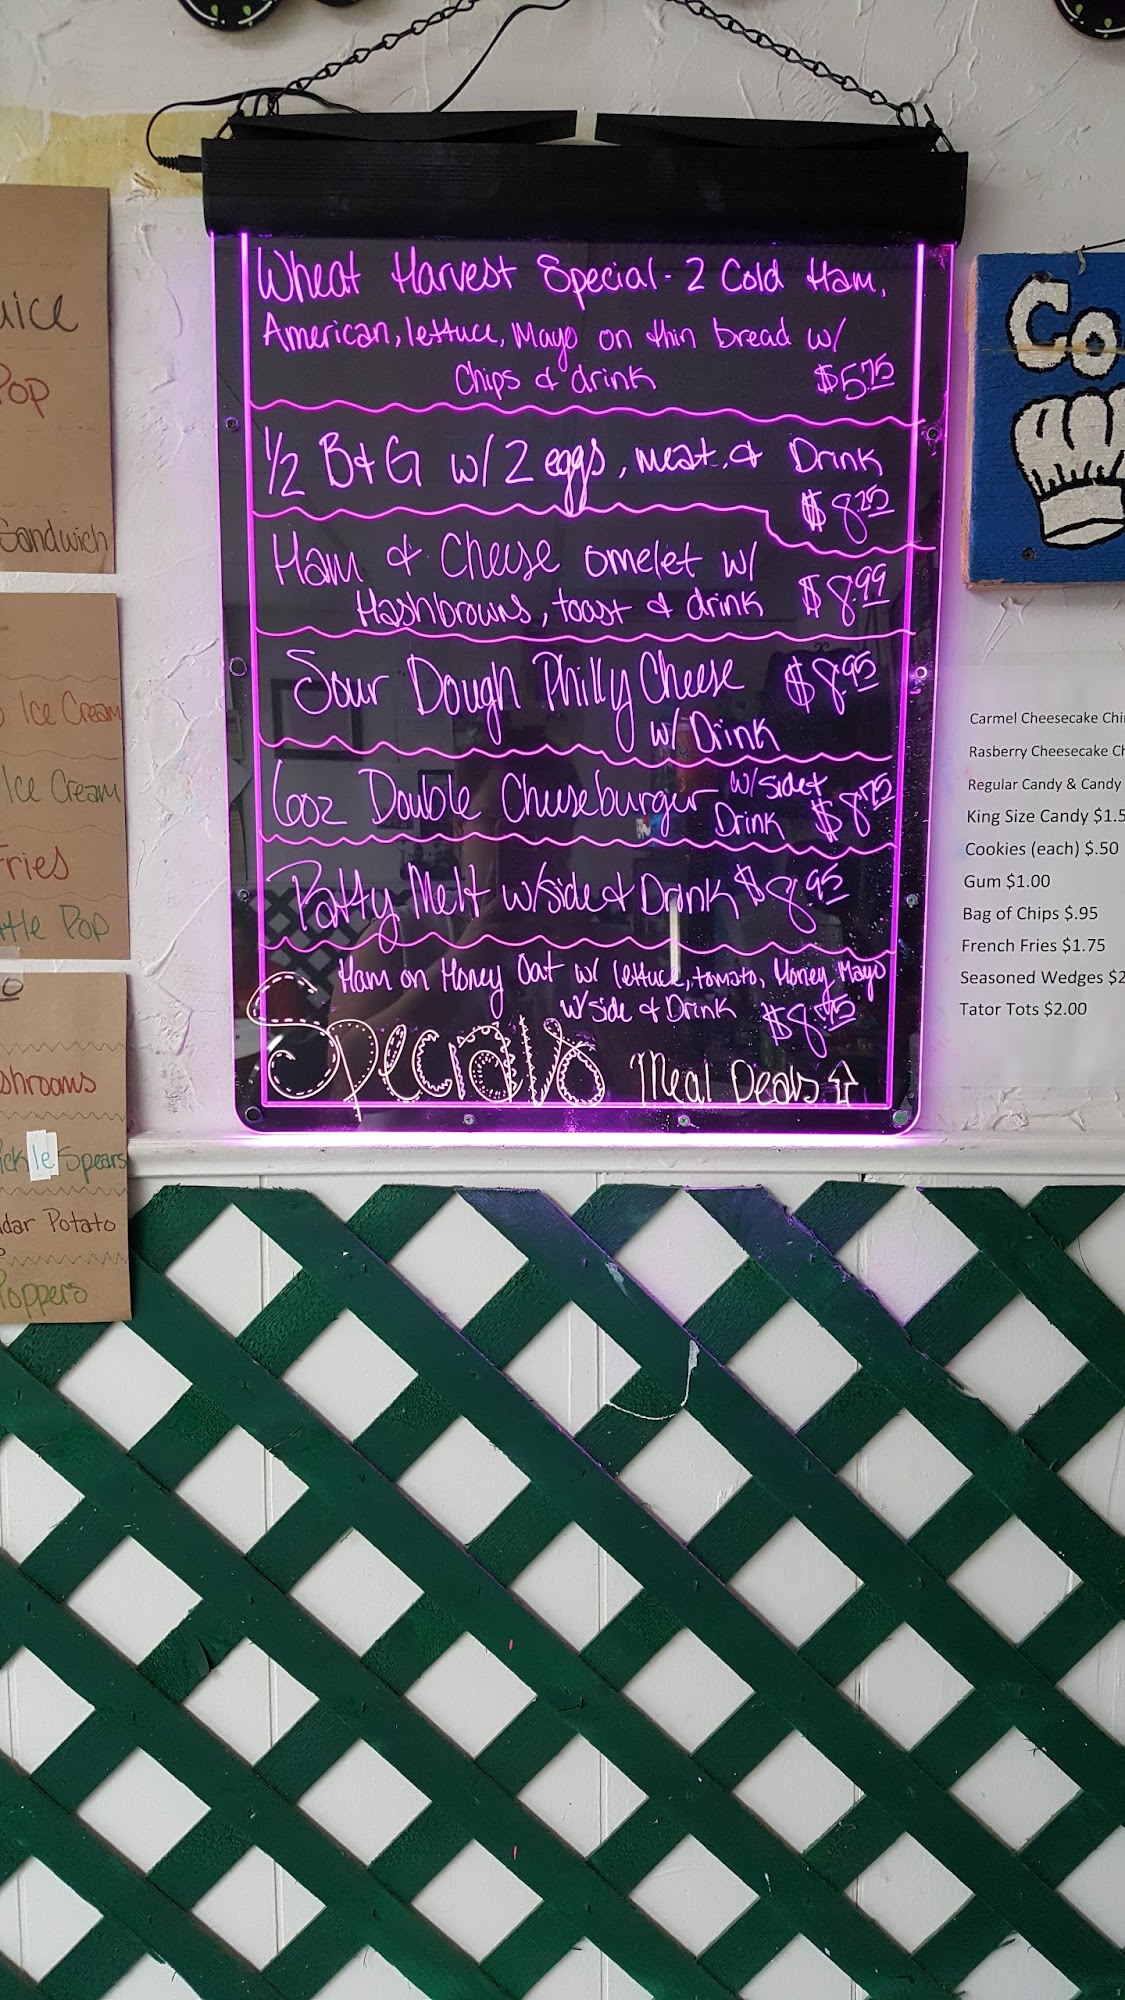 Wheat Harvest Special - 2 Cold Ham,
American, lettuce, Mayo on thin bread w/
Chips & drink $5.75
1/2 B & G w/ 2 eggs, meat, & Drink
$8.25
Ham & Cheese omelet w/
Hashbrowns, toast & drink $8.99
Sour Dough Philly Cheese $8.95
w/ Drink
6oz Double Cheeseburger w/ side &
Drink $8.75
Patty Melt w/ side & Drink $8.95
Ham on Honey Oat w/ lettuce, tomato, Honey Mayo
w/ side & Drink
Specials Meal Deals
Pop
Sandwich
Ice Cream
Ice Cream
Fries
Pop
Spears
Potato
Poppers
Co
Carmel Cheesecake
Rasberry Cheesecake
Regular Candy & Candy
King Size Candy $1.5
Cookies (each) $.50
Gum $1.00
Bag of Chips $.95
French Fries $1.75
Seasoned Wedges $2
Tator Tots $2.00